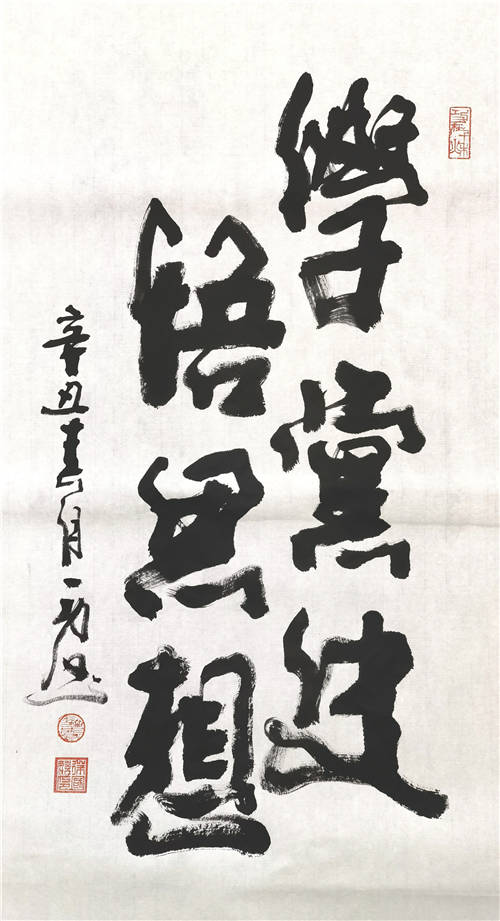 學黨史
悟思想
辛丑春月一